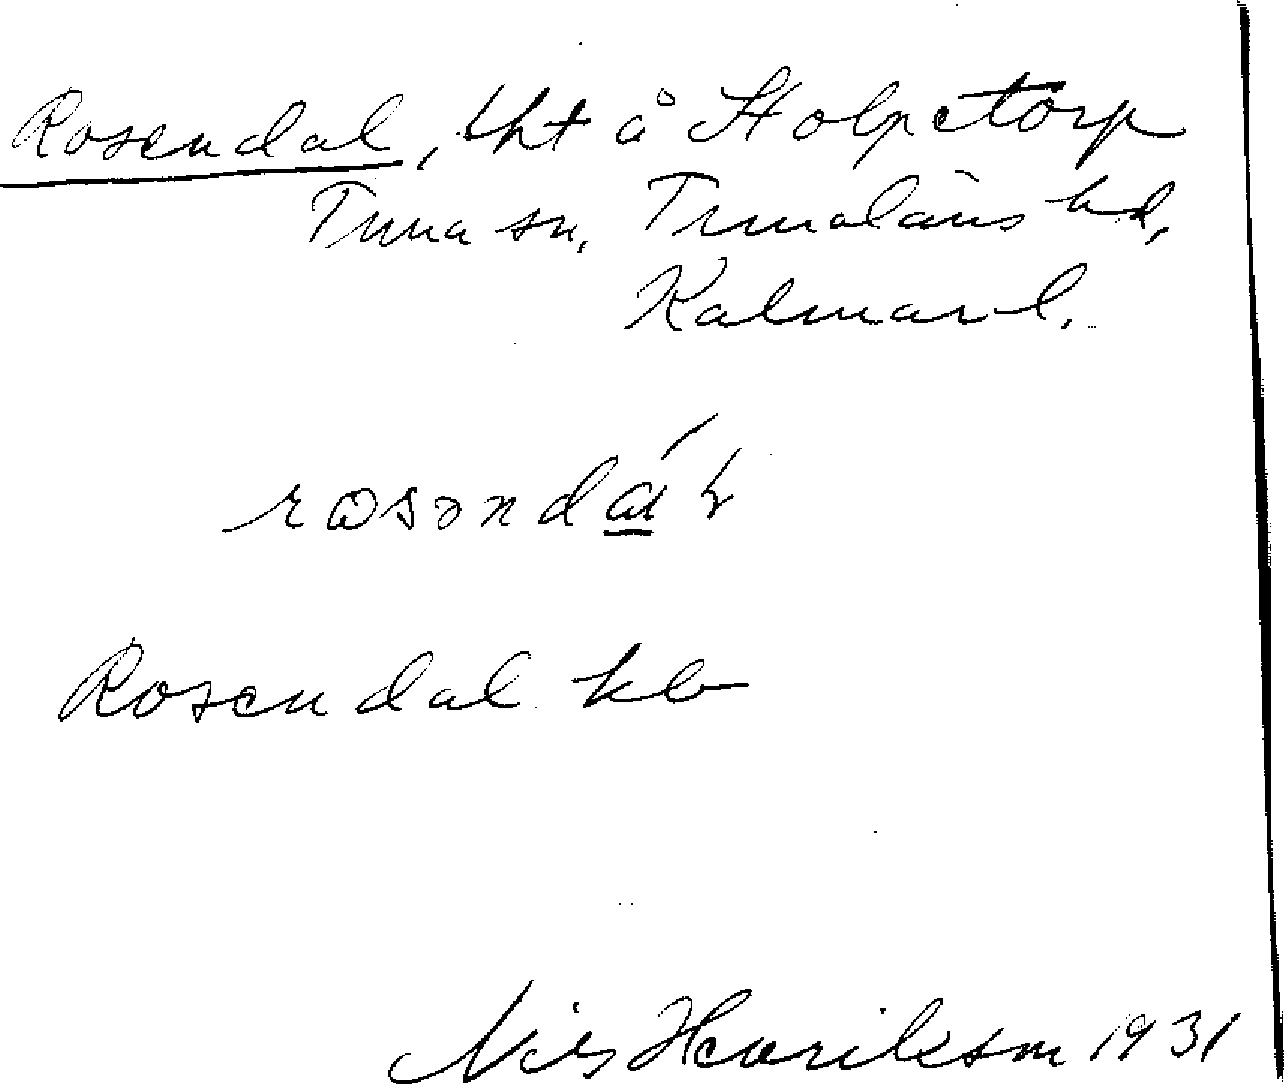 Rosendal, lht å Stolpetorp
Tuna sn, Tunaläns hd,
Kalmar l.
rosəndá
Rosendal kb
Nils Henriksson 1931